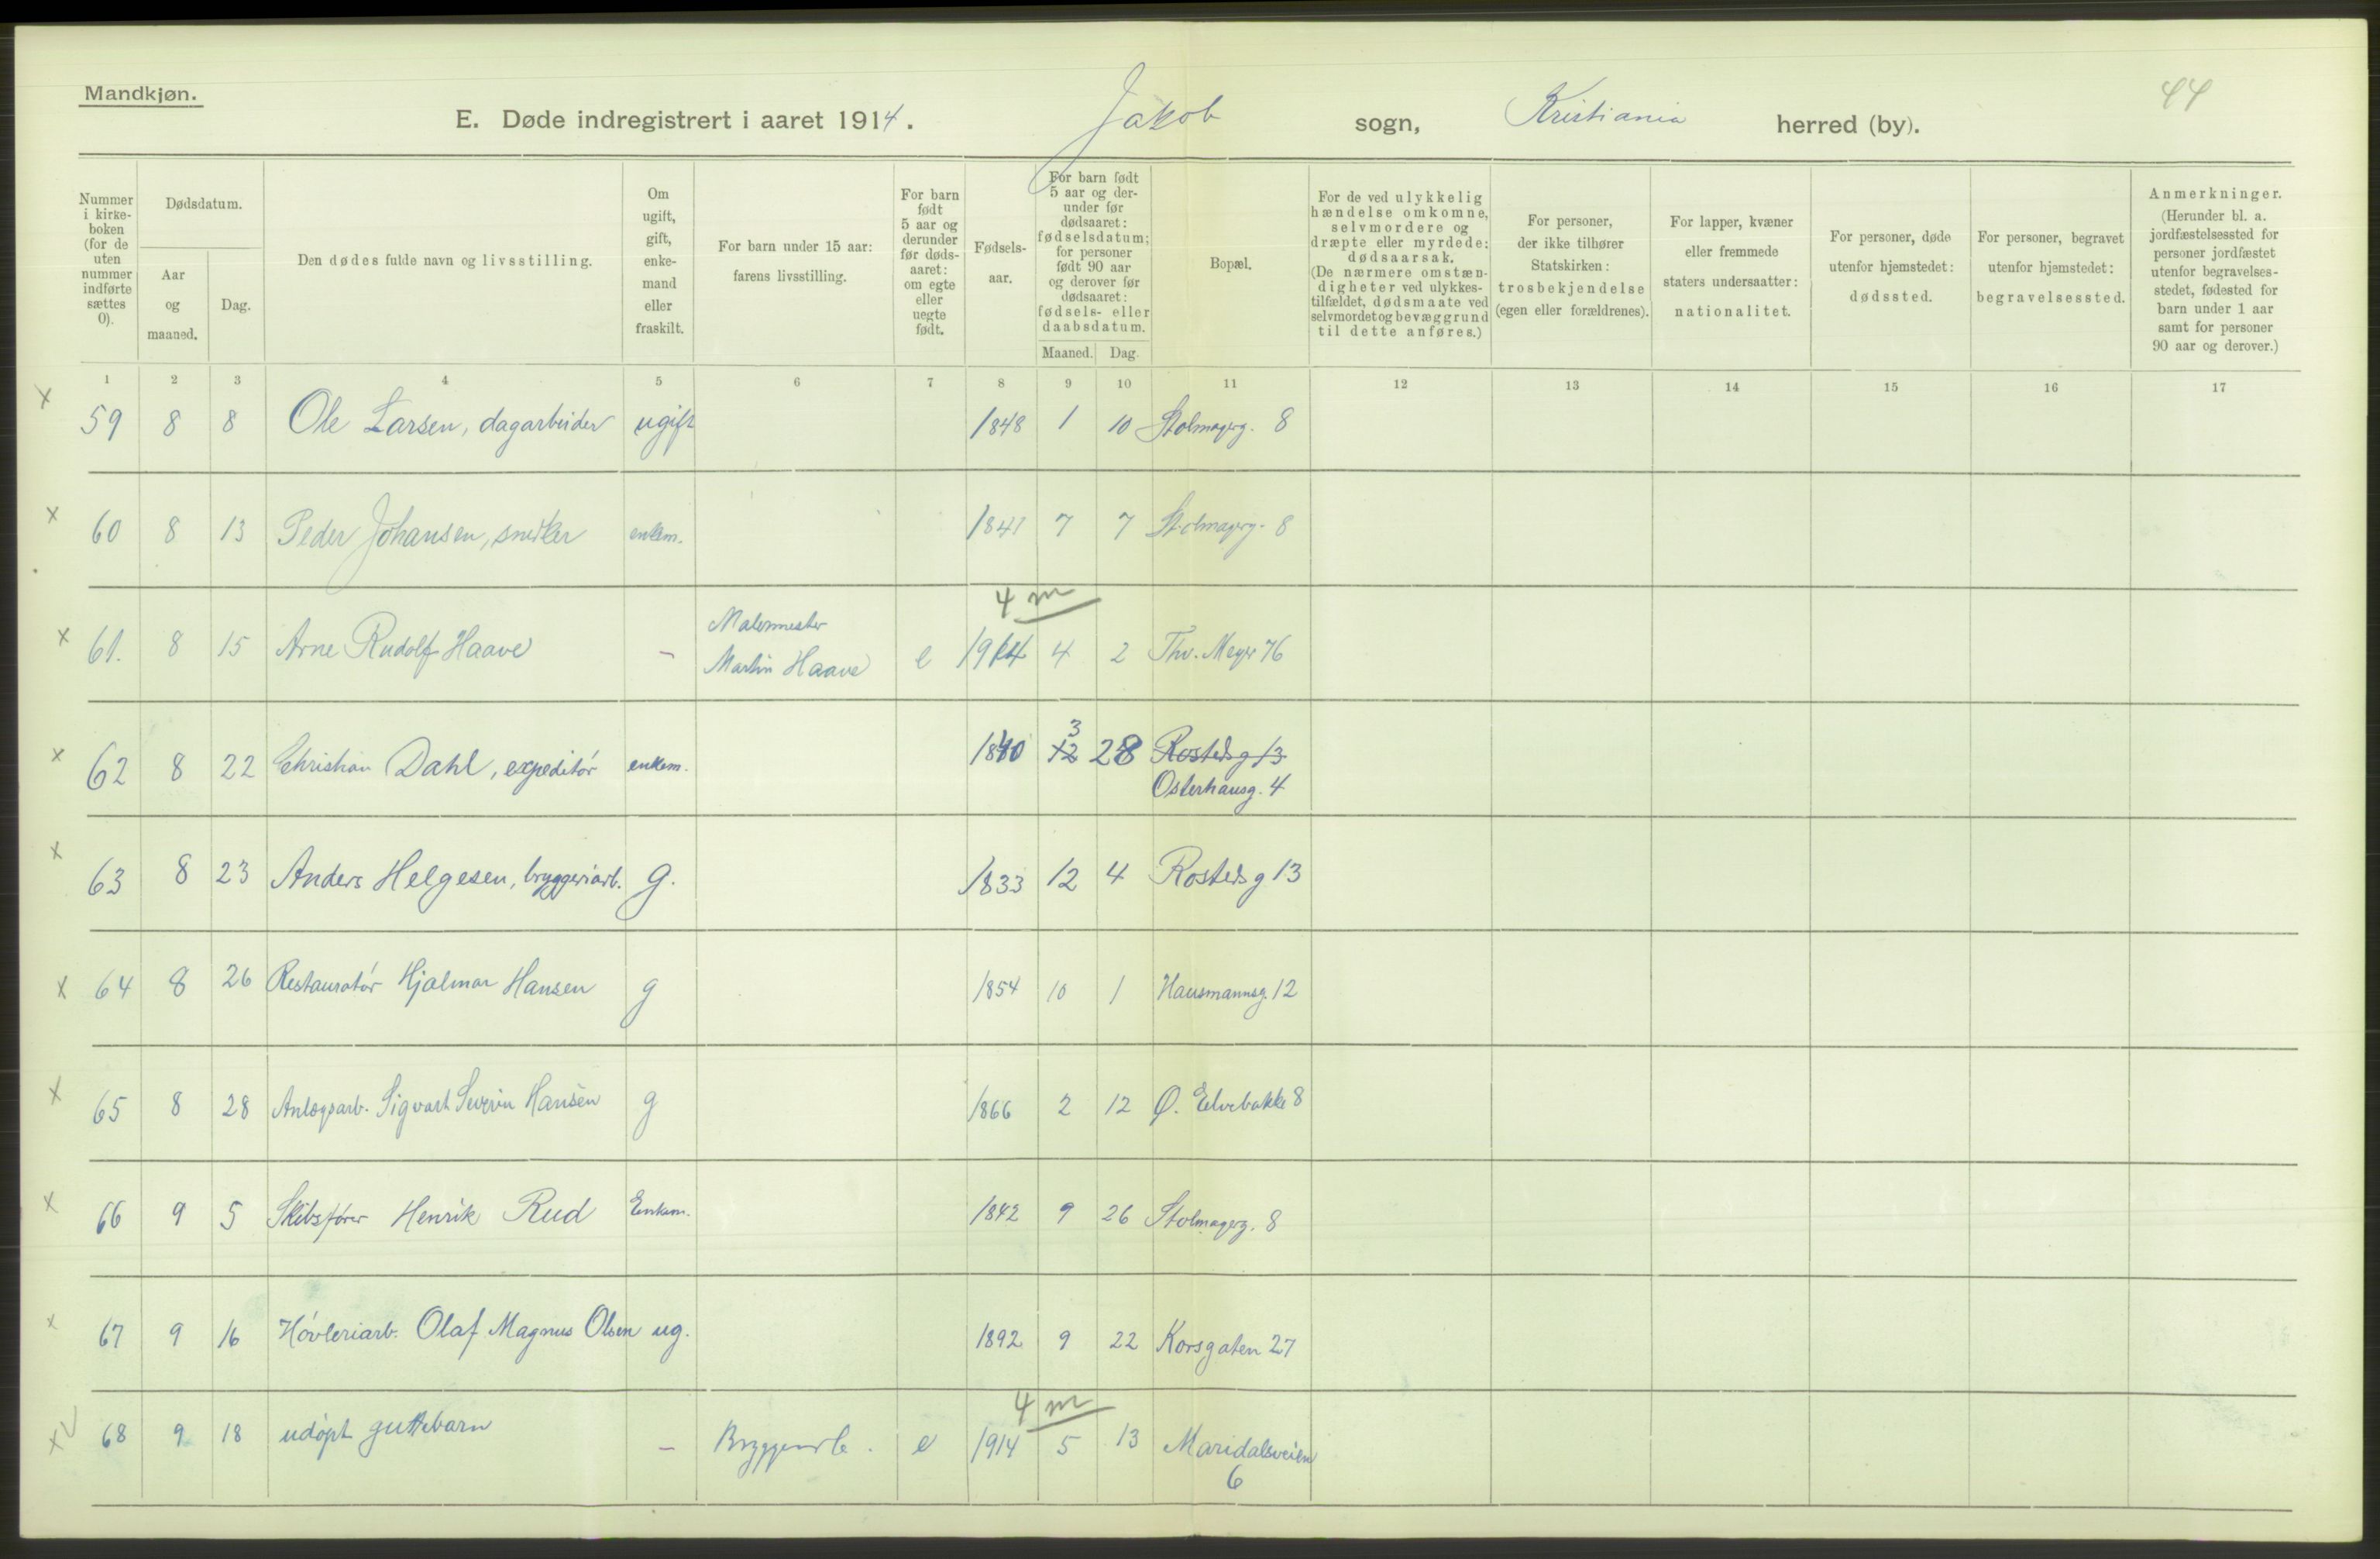 Mandkjøn.
E. Døde indregistrert i aaret 1914. Jakob sogn, Kristiania herred (by).
44
Nummer i kirke-boken (for de uten nummer indførte sættes 0).
Dødsdatum.
Aar og maaned.
Dag.
Den dødes fulde navn og livsstilling.
Om ugift, gift, enke-mand eller fraskilt.
For barn under 15 aar: farens livsstilling.
For barn født 5 aar og derunder før døds-aaret: om egte eller uegte født.
Fødsels-aar.
For barn født 5 aar og der-under før dødsaaret: fødselsdatum; for personer født 90 aar og derover før dødsaaret: fødsels- eller daabsdatum.
Maaned. Dag.
Bopæl.
For de ved ulykkelig hændelse omkomne, selvmordere og dræpte eller myrdede: dødsaarsak. (De nærmere omstæn-digheter ved ulykkes-tilfældet, dødsmaate ved selvmordet og bevæggrund til dette anføres.)
For personer, der ikke tilhører Statskirken: trosbekjendelse (egen eller forældrenes).
For lapper, kvæner eller fremmede staters undersaatter: nationalitet.
For personer, døde utenfor hjemstedet: dødssted.
For personer, begravet utenfor hjemstedet: begravelsessted.
Anmerkninger. (Herunder bl. a. jordfæstelsessted for personer jordfæstet utenfor begravelses-stedet, fødested for barn under 1 aar samt for personer 90 aar og derover.)
1 2 3 4 5 6 7 8 9 10 11 12 13 14 15 16 17
x 59 8 8 Ole Larsen, dagarbeider ugift 1848 1 10 Stolmagerg. 8
x 60 8 13 Peder Johansen, snedker enkem. 1841 7 7 Stolmagerg. 8
4 m
x 61. 8 15 Arne Rudolf Haave - Malermester Martin Haave e 1914 4 2 Thv. Meyer 76
x 62 8 22 Christian Dahl, expeditór enkem. 1840 12 3 28 Rosteds g 13
Osterhausg. 4
x 63 8 23 Anders Helgesen, bryggeriarb. g. 1833 12 4 Rosteds g 13
x 64 8 26 Restauratór Hjalmar Hansen g 1854 10 1 Hausmannsg. 12
x 65 8 28 Anlægsarb. Sigvart Severin Hansen g 1866 2 12 Ø. Elvebakke 8
x 66 9 5 Skibsfører Henrik Rud Enkem. 1842 9 26 Stolmagerg. 8
x 67 9 16 Hóvleriarb. Olaf Magnus Olsen ug. 1892 9 22 Korsgaten 27
4 m
x 68 9 18 udøpt guttebarn - Bryggeriarb. e 1914 5 13 Maridalsveien
6